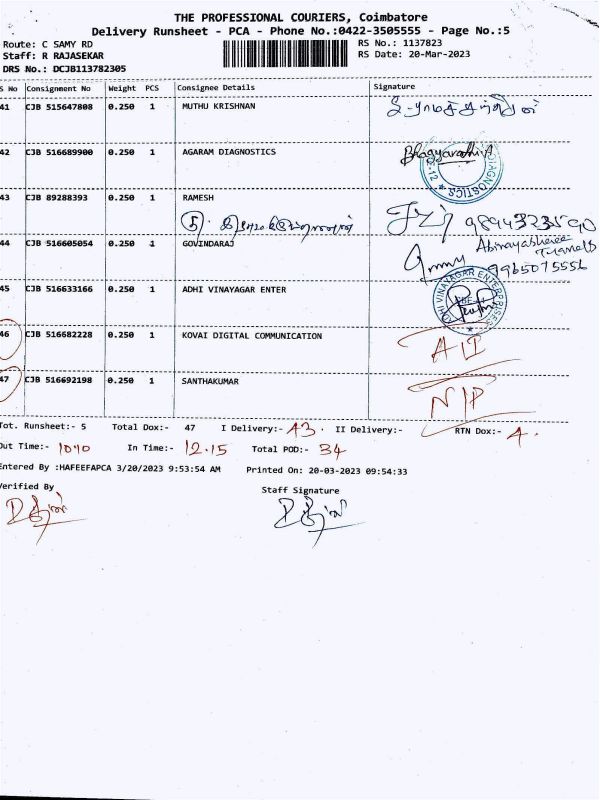 THE PROFESSIONAL COURIERS, Coimbatore
Delivery Runsheet - PCA - Phone No.:0422-3505555 - Page No.:5
Route: C SAMY RD
RS No.: 1137823
Staff: R RAJASEKAR
RS Date: 20-Mar-2023
DRS No.: DCJB113782305
S No Consignment No Weight PCS Consignee Details Signature
41 CJB 515647808 0.250 1 MUTHU KRISHNAN
42 CJB 516689900 0.250 1 AGARAM DIAGNOSTICS
DIAGNOSTICS
43 CJB 89288393 0.250 1 RAMESH
44 CJB 516605054 0.250 1 GOVINDARAJ
9965075556
45 CJB 516633166 0.250 1 ADHI VINAYAGAR ENTER
ADHI VINAYAGAR ENTERPRISES
46 CJB 516682228 0.250 1 KOVAI DIGITAL COMMUNICATION
47 CJB 516692198 0.250 1 SANTHAKUMAR
N/P
Tot. Runsheet:- 5 Total Dox:- 47 I Delivery:- 43. II Delivery:- RTN Dox:- 4.
Out Time:- 1040 In Time:- 12.15 Total POD:- 34
Entered By :HAFEEFAPCA 3/20/2023 9:53:54 AM Printed On: 20-03-2023 09:54:33
Verified By
Staff Signature